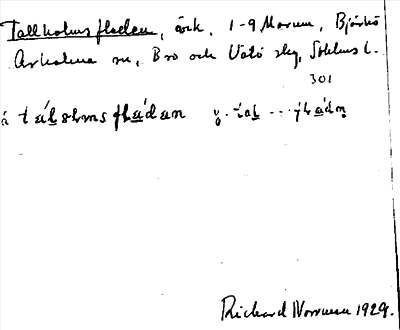 Tallholmsfladen, örk, 1-9 Marum, Björkö
Arholma sn, Bro och Vätö skg, Sthlms l.
301
å tálholmsfládan
Richard Norrman 1929.